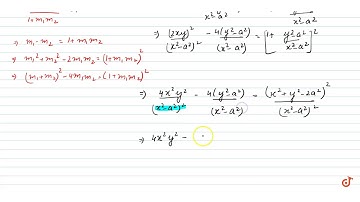 1+m₁m₂
x²-a²
x²-a²
⇒ m₁-m₂ = 1+m₁m₂
⇒ m₁²+m₂²-2m₁m₂=(1+m₁m₂)²
⇒ (m₁+m₂)²-4m₁m₂=(1+m₁m₂)²
⇒ (2xy)²/(x²-a²)² - 4(y²-a²)/(x²-a²) = [1+ (y²-a²)/(x²-a²)]²
⇒ 4x²y²/(x²-a²)² - 4(y²-a²)/(x²-a²) = (x²+y²-2a²)²/(x²-a²)²
⇒ 4x²y² -